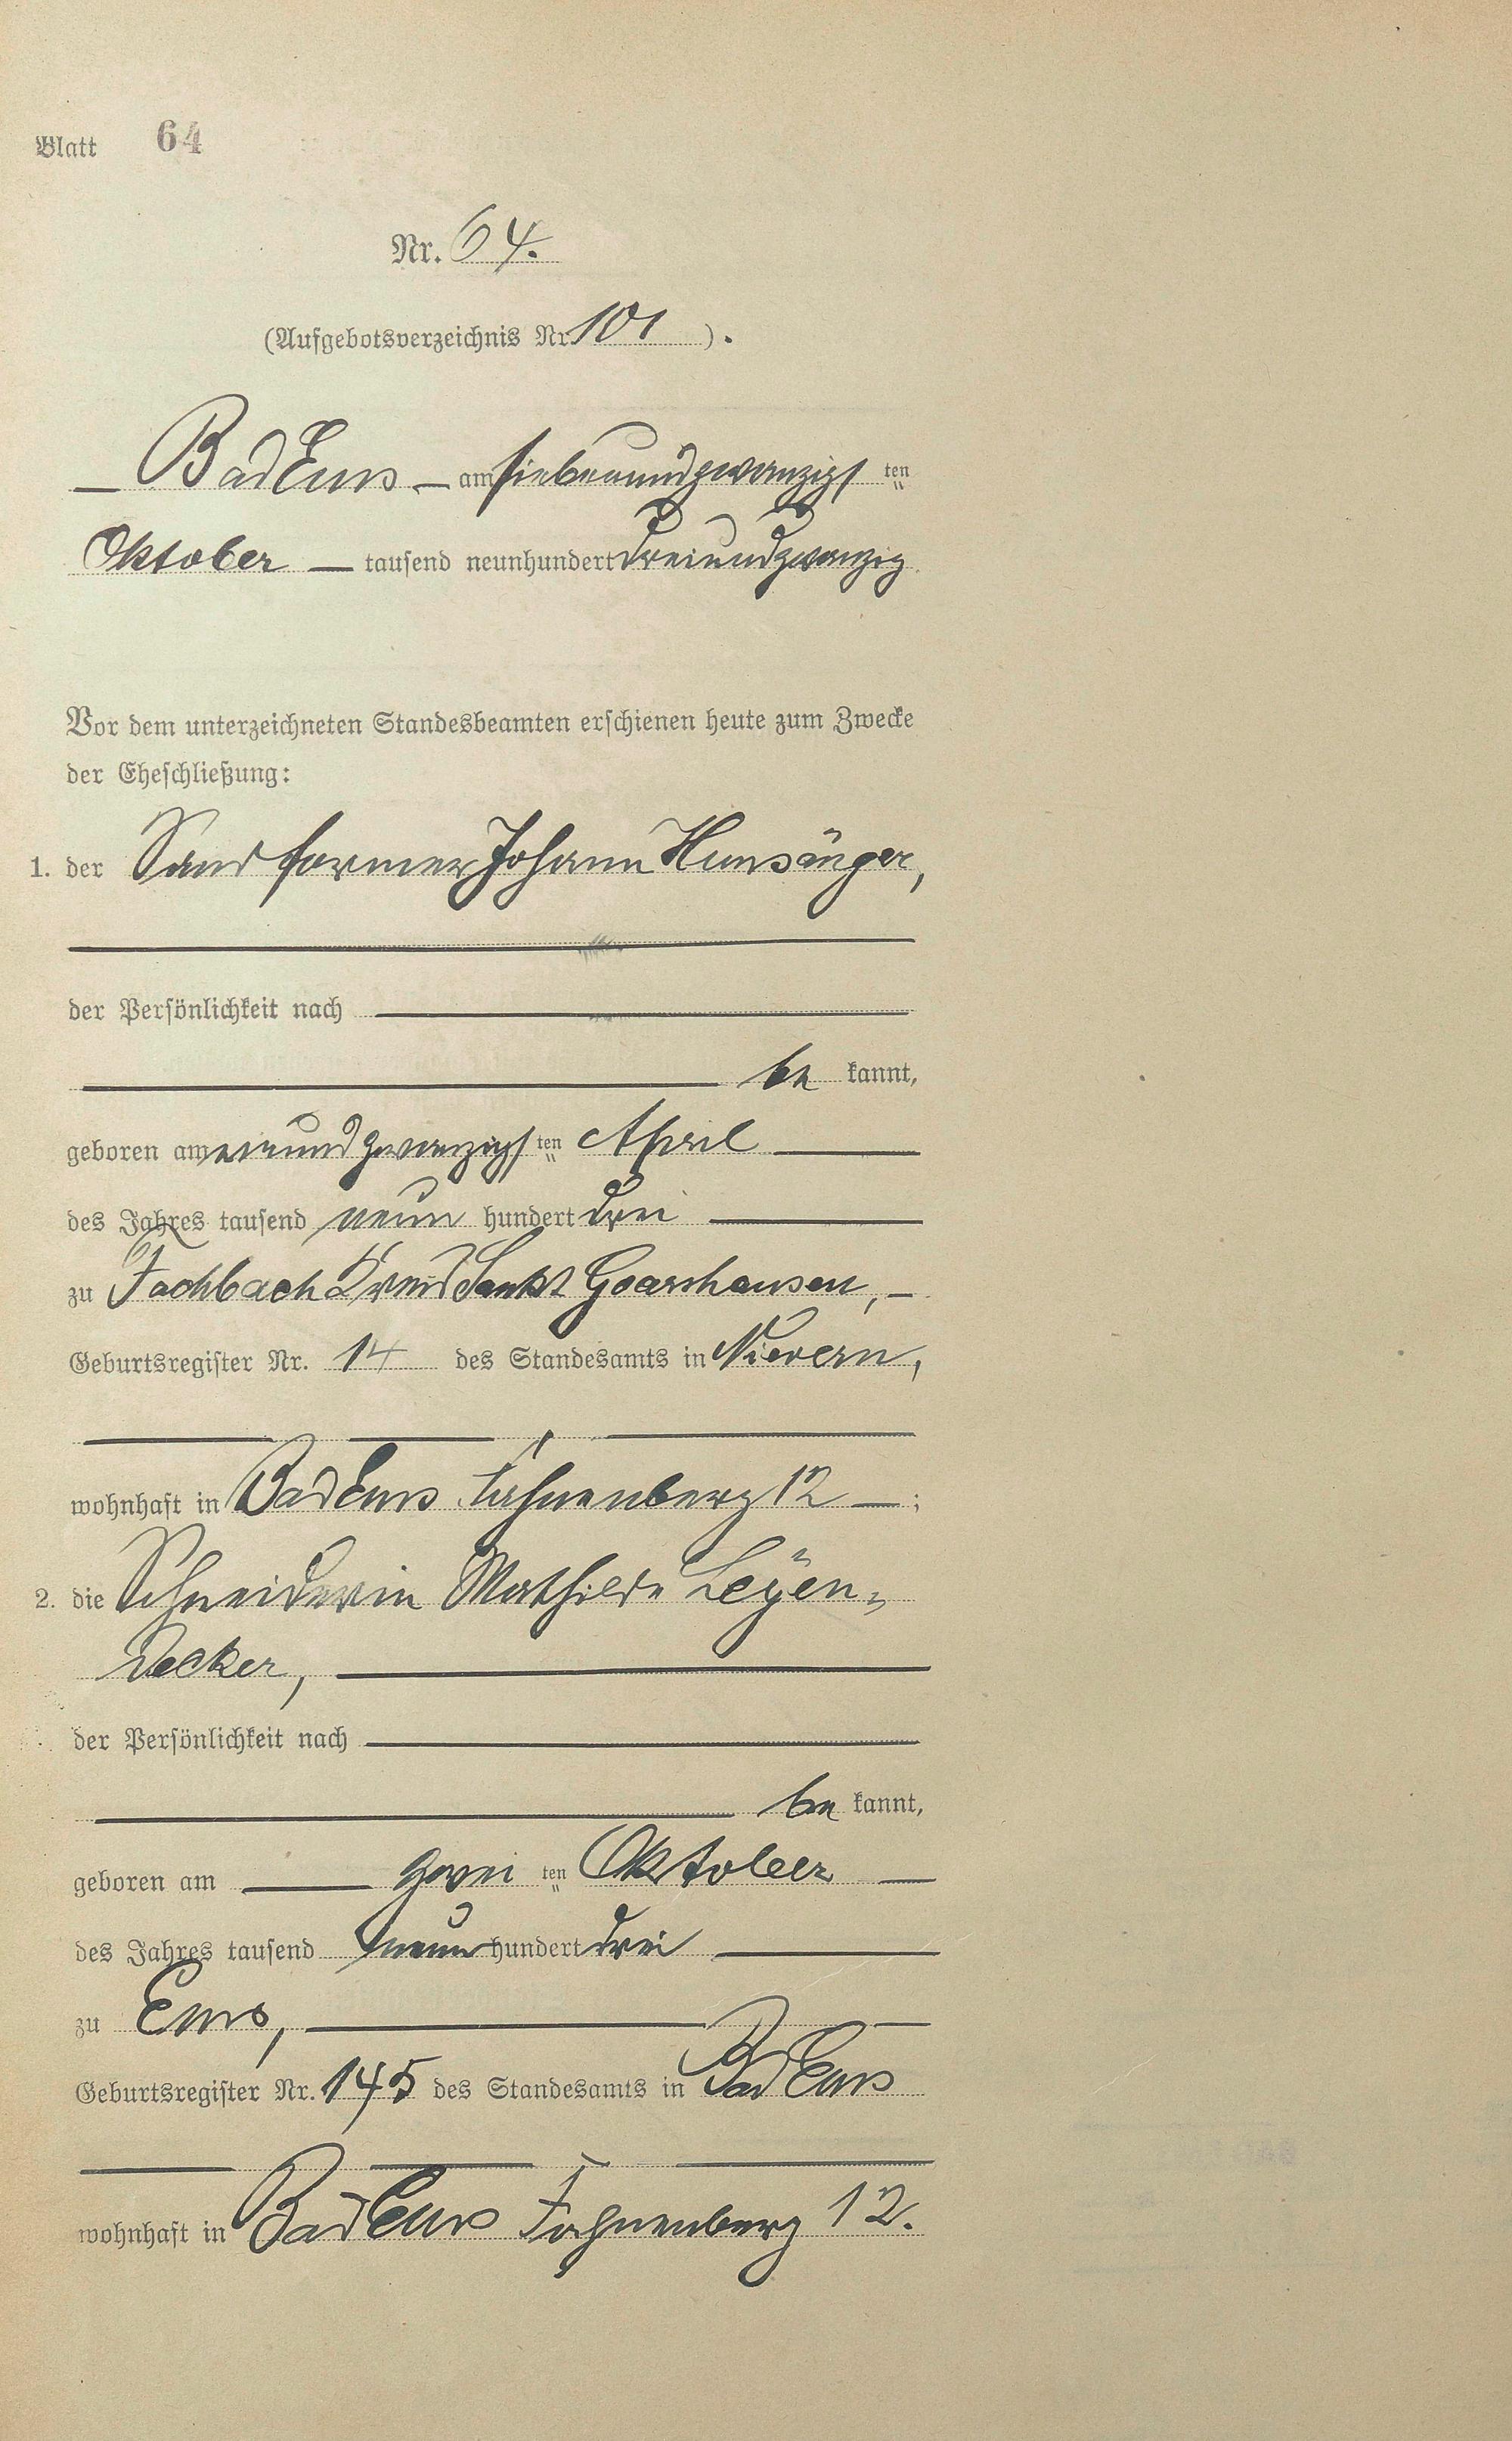 Blatt 64
Nr. 64.
(Aufgebotsverzeichnis Nr. 101).
Bad Ems – am siebenundzwanzigsten
Oktober – tausend neunhundert dreiundzwanzig
Vor dem unterzeichneten Standesbeamten erschienen heute zum Zwecke
der Eheschließung:
1. der Sandformer Johann Hunsänger,
der Persönlichkeit nach
be kannt,
geboren am einundzwanzigsten April
des Jahres tausend neun hundert drei
zu Fachbach Kreis Sankt Goarshausen, –
Geburtsregister Nr. 14 des Standesamts in Nievern,
wohnhaft in Bad Ems Fahnenberg 12 – ;
2. die Schneiderin Mathilde Leÿen-
decker,
der Persönlichkeit nach
be kannt,
geboren am zwei ten Oktober
des Jahres tausend neun hundert drei
zu Ems,
Geburtsregister Nr. 145 des Standesamts in Bad Ems
wohnhaft in Bad Ems Fahnenberg 12.